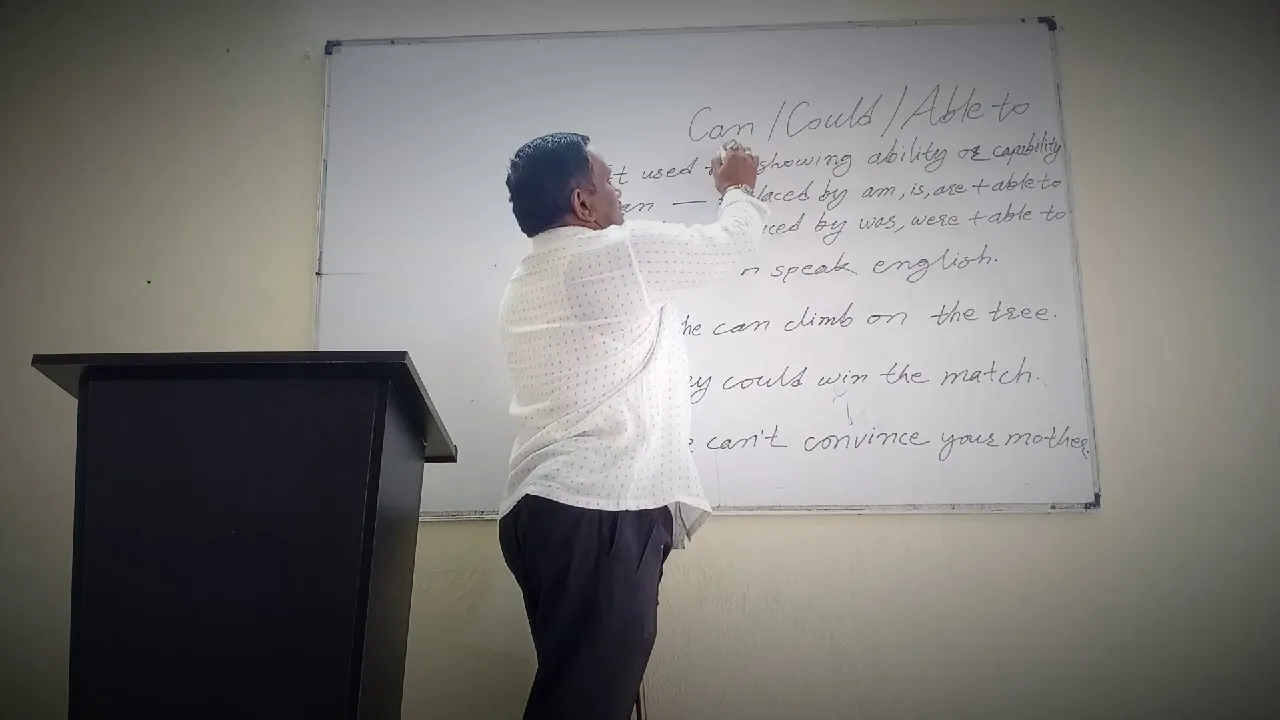 Can / Could / Able to
it used showing ability or capability
— by am, is, are + able to
by was, were + able to
speak english.
he can climb on the tree.
could win the match.
can't convince your mother.